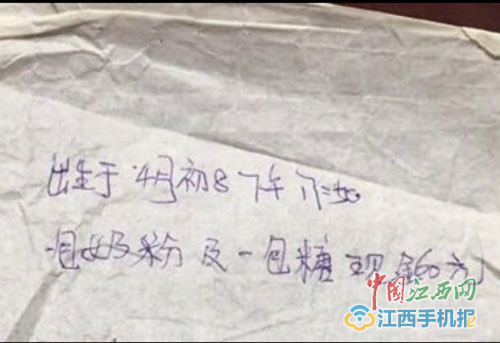 出生于4月初8下午
包奶粉及一包糖现金60
中国江西网
江西手机报